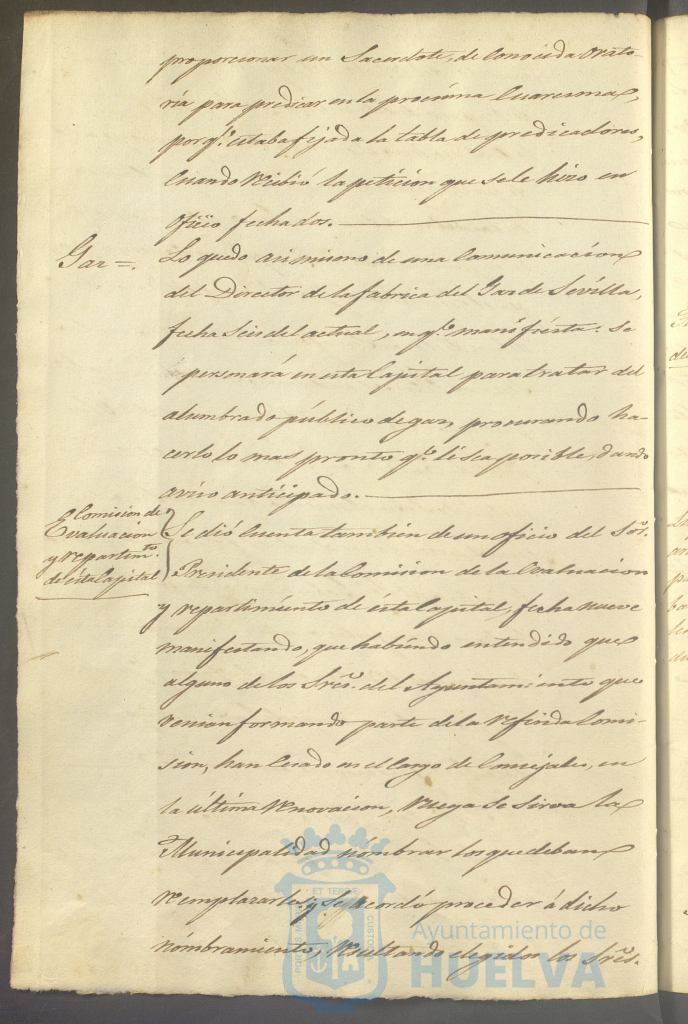 proporcionar un Sacerdote, de conocida Orato-
ria para predicar en la procsima Cuaresma,
por qe. estaba fijada la tabla de predicadores,
cuando recibió la peticion que se le hizo en
oficio fecha dos.
Gaz =.
Lo quedo asi mismo de una comunicacion
del Director de la fabrica del Gaz de Sevilla,
fecha seis del actual, en qe. manifiesta: se
personará en esta Capital para tratar del
alumbrado público de gaz, procurando ha-
cerlo lo mas pronto qe. le sea posible, dando
aviso anticipado.
Comision de
Evaluacion
y repartimto.
de esta Capital
Se dió cuenta tambien de un oficio del Sor.
Presidente de la Comision de la Evaluacion
y repartimiento de esta Capital, fecha nueve
manifestando, que habiendo entendido que
alguno de los Sres. del Ayuntamiento que
venian formando parte de la referida Comi-
sion, han cesado en el cargo de Concejales, en
la última renovacion, ruega se sirva la
Municipalidad nombrar los que deban
remplazarles; y se acordó proceder á dicho
nombramiento, resultando elegidos los Sres.
Ayuntamiento de
HUELVA